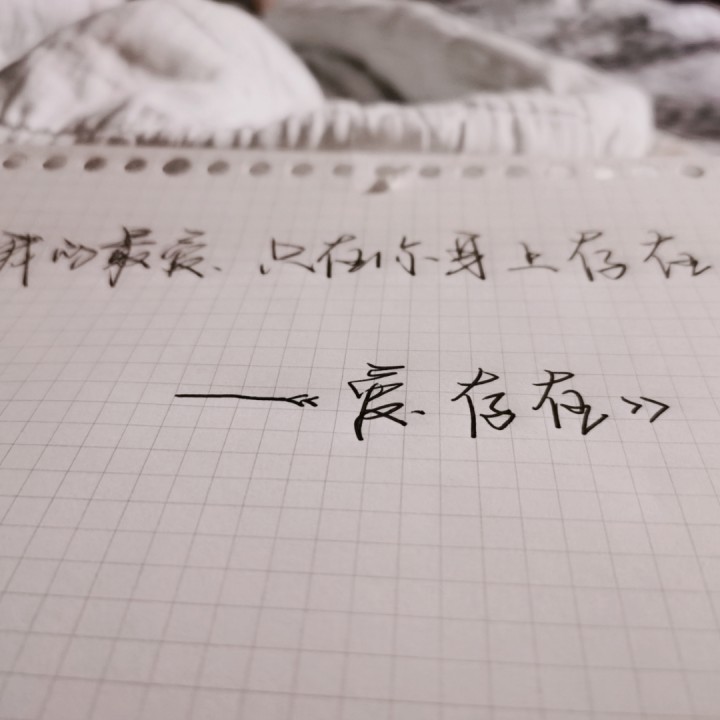 我的最爱、只在你身上存在
——《爱、存在》